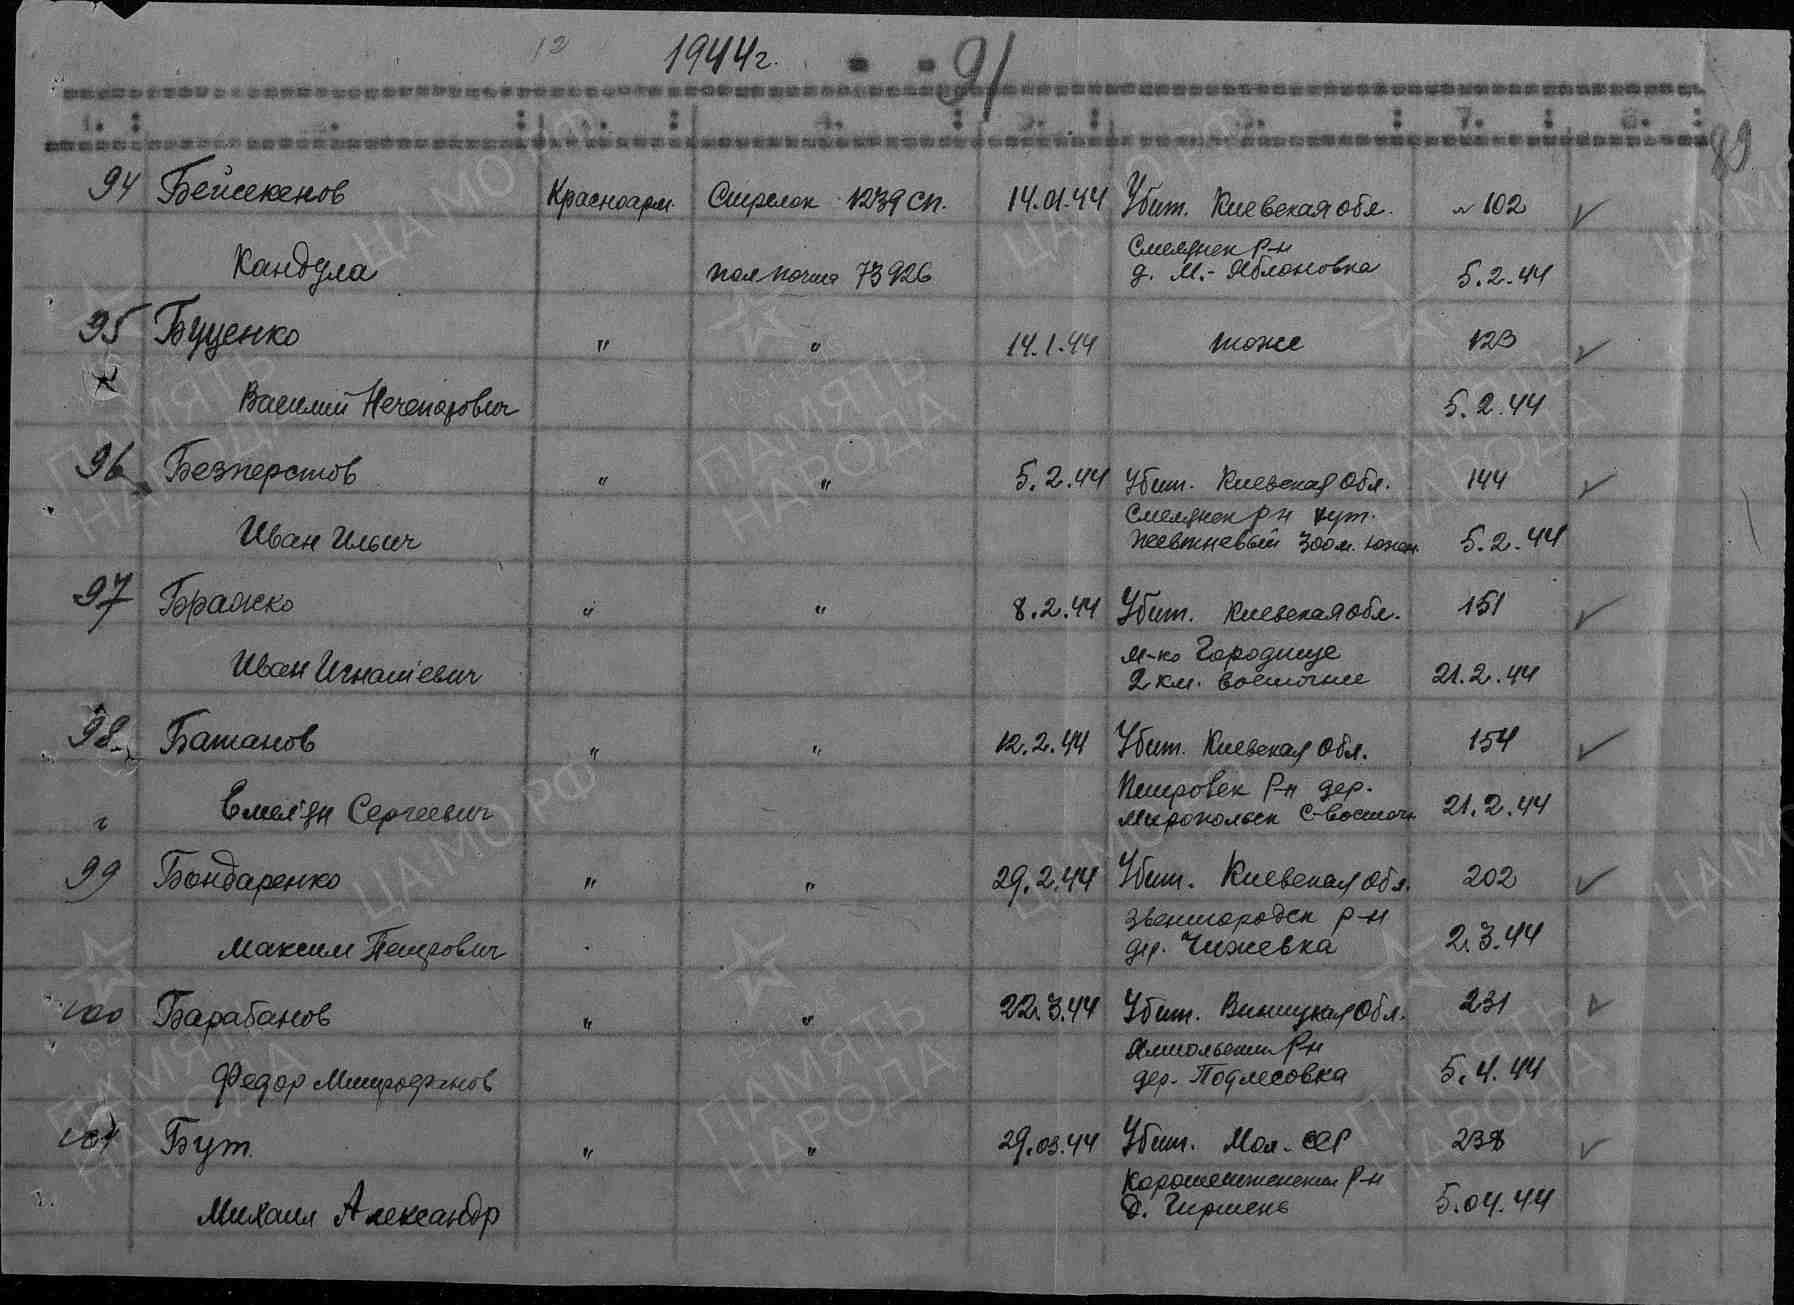 12 1944г. - - 91
1. : 2. : 3. : 4. : 5. : 6. : 7. : 8. :
89
94 Бейсекенов Красноарм. Стрелок 1239 сп. 14.01.44 Убит. Киевская обл. № 102
Кандула пол почта 73926 Смелянск р-н
д. М.-Яблоновка 5.2.44
95 Буценко " " 14.1.44 тоже 123
Василий Нечепорович 5.2.44
96 Безперстов " " 5.2.44 Убит. Киевская Обл. 144
Иван Ильич Смелянск р-н хут.
300 м. южн. 5.2.44
97 Бражко " " 8.2.44 Убит. Киевская обл. 151
Иван Игнатьевич м-ко Городище
2 км. восточнее 21.2.44
98 Батанов " " 12.2.44 Убит. Киевская Обл. 154
Емельян Сергеевич Петровск р-н дер.
С-восточн 21.2.44
99 Бондаренко " " 29.2.44 Убит. Киевская Обл. 202
Максим Петрович Звенигородск р-н
дер. Чижевка 2.3.44
100 Барабанов " " 22.3.44 Убит. Виницкая Обл. 231
Федор Митрофанов Ямпольский р-н
дер. Подлесовка 5.4.44
101 Бут " " 29.03.44 Убит. Мол. ССР 238
Михаил Александр р-н
д. 5.04.44
ЦА МО РФ
ПАМЯТЬ НАРОДА
1941-1945